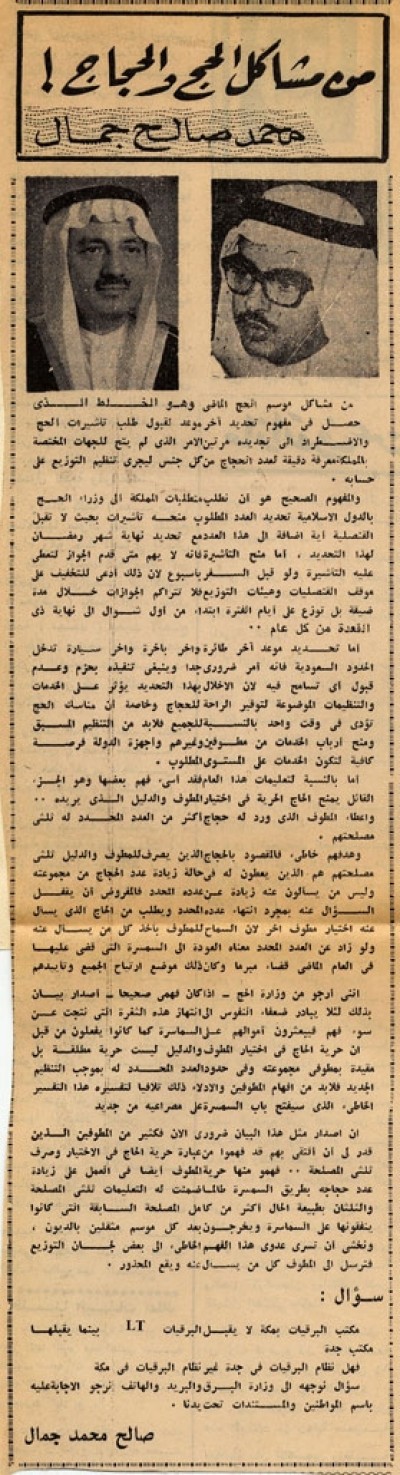 من مشاكل الحج والحجاج !
محمد صالح جمال
من مشاكل موسم الحج الماضي وهو الخلط الذى
حصل في مفهوم تحديد آخر موعد لقبول طلب تأشيرات الحج
والاضطراد الى تجديده مرتين الامر الذى لم يتح للجهات المختصة
بالمملكة معرفة دقيقة لعدد الحجاج من كل جنس ليجرى تنظيم التوزيع على
حسابه .
والمفهوم الصحيح هو أن نطلب متطلبات المملكة الى وزراء الحج
بالدول الاسلامية تحديد العدد المطلوب منحه تأشيرات بحيث لا تقبل
القنصلية أية اضافة الى هذا العدد مع تحديد نهاية شهر رمضان
لهذا التحديد ، أما منح التأشيرة فانه لا يهم متى قدم الجواز لتعطى
عليه التأشيرة ولو قبل السفر بأسبوع لان ذلك أدعى للتخفيف على
موقف القنصليات وهيئات التوزيع فلا تتراكم الجوازات خلال مدة
ضيقة بل توزع على أيام الفترة ابتداء من أول شوال الى نهاية ذى
القعدة من كل عام ٠٠
أما تحديد موعد آخر طائرة وآخر باخرة وآخر سيارة تدخل
الحدود السعودية فانه أمر ضرورى جدا وينبغى تنفيذه بحزم وعدم
قبول أى تسامح فيه لان الاخلال بهذا التحديد يؤثر على الخدمات
والتنظيمات الموضوعة لتوفير الراحة للحجاج وخاصة أن مناسك الحج
تؤدى فى وقت واحد بالنسبة للجميع فلابد من التنظيم المسبق
ومنح أرباب الخدمات من مطوفين وغيرهم وأجهزة الدولة فرصة
كافية لتكون الخدمات على المستوى المطلوب .
أما بالنسبة لتعليمات هذا العام فقد أسىء فهم بعضها وهو الجزء
القائل بمنح الحاج الحرية في اختيار المطوف والدليل الذى يريده ٠٠
واعطاء المطوف الذى ورد له حجاج أكثر من العدد المحدد له ثلثى
مصلحتهم .
وهدفهم خاطىء فالمقصود بالحجاج الذين يصرف للمطوف والدليل ثلثى
مصلحتهم هم الذين يعطون له فى حالة زيادة عدد الحجاج من مجموعته
وليس من يسألون عنه زيادة عن عدده المحدد فالمفروض أن يقفل
السؤال عنه بمجرد انتهاء عدده المحدد ويطلب من الحاج الذى يسأل
عنه اختيار مطوف آخر لان السماح للمطوف بأخذ كل من يسأل عنه
ولو زاد عن العدد المحدد معناه العودة الى السمسرة التى قضى عليها
فى العام الماضى قضاء مبرما وكان ذلك موضع ارتياح الجميع وتأييدهم
اننى أرجو من وزارة الحج ـ اذا كان فهمى صحيحا ـ اصدار بيان
بذلك لئلا يبادر ضعفاء النفوس الى انتهاز هذه الثغرة التى نتجت عن
سوء فهم فيبعثرون أموالهم على السماسرة كما كانوا يفعلون من قبل
ان حرية الحاج فى اختيار المطوف والدليل ليست حرية مطلقة بل
مقيدة بمطوفى مجموعته وفى حدود العدد المحدد له بموجب التنظيم
الجديد فلابد من افهام المطوفين والادلاء ذلك تلافيا لتفسير هذا التفسير
الخاطىء الذى سيفتح باب السمسرة على مصراعيه من جديد
ان اصدار مثل هذا البيان ضرورى الآن فكثير من المطوفين الذين
قدر لى أن ألتقى بهم قد فهموا من عبارة حرية الحاج فى الاختيار وصرف
ثلثى المصلحة ٠٠ فهموا منها حرية المطوف أيضا فى العمل على زيادة
عدد حجاجه بطريق السمسرة طالما ضمنت له التعليمات ثلثى المصلحة
والثلثان بطبيعة الحال أكثر من كامل المصلحة السابقة التى كانوا
ينفقونها على السماسرة ويخرجون بعد كل موسم مثقلين بالديون ،
ونخشى أن تسرى عدوى هذا الفهم الخاطىء الى بعض لجان التوزيع
فترسل الى المطوف كل من يسأل عنه ويقع المحذور .
سؤال :
مكتب البرقيات بمكة لا يقبل البرقيات LT بينما يقبلها
مكتب جدة
فهل نظام البرقيات فى جدة غير نظام البرقيات فى مكة
سؤال نوجهه الى وزارة البرق والبريد والهاتف نرجو الاجابة عليه
باسم المواطنين والمستندات تحت يدنا .
صالح محمد جمال